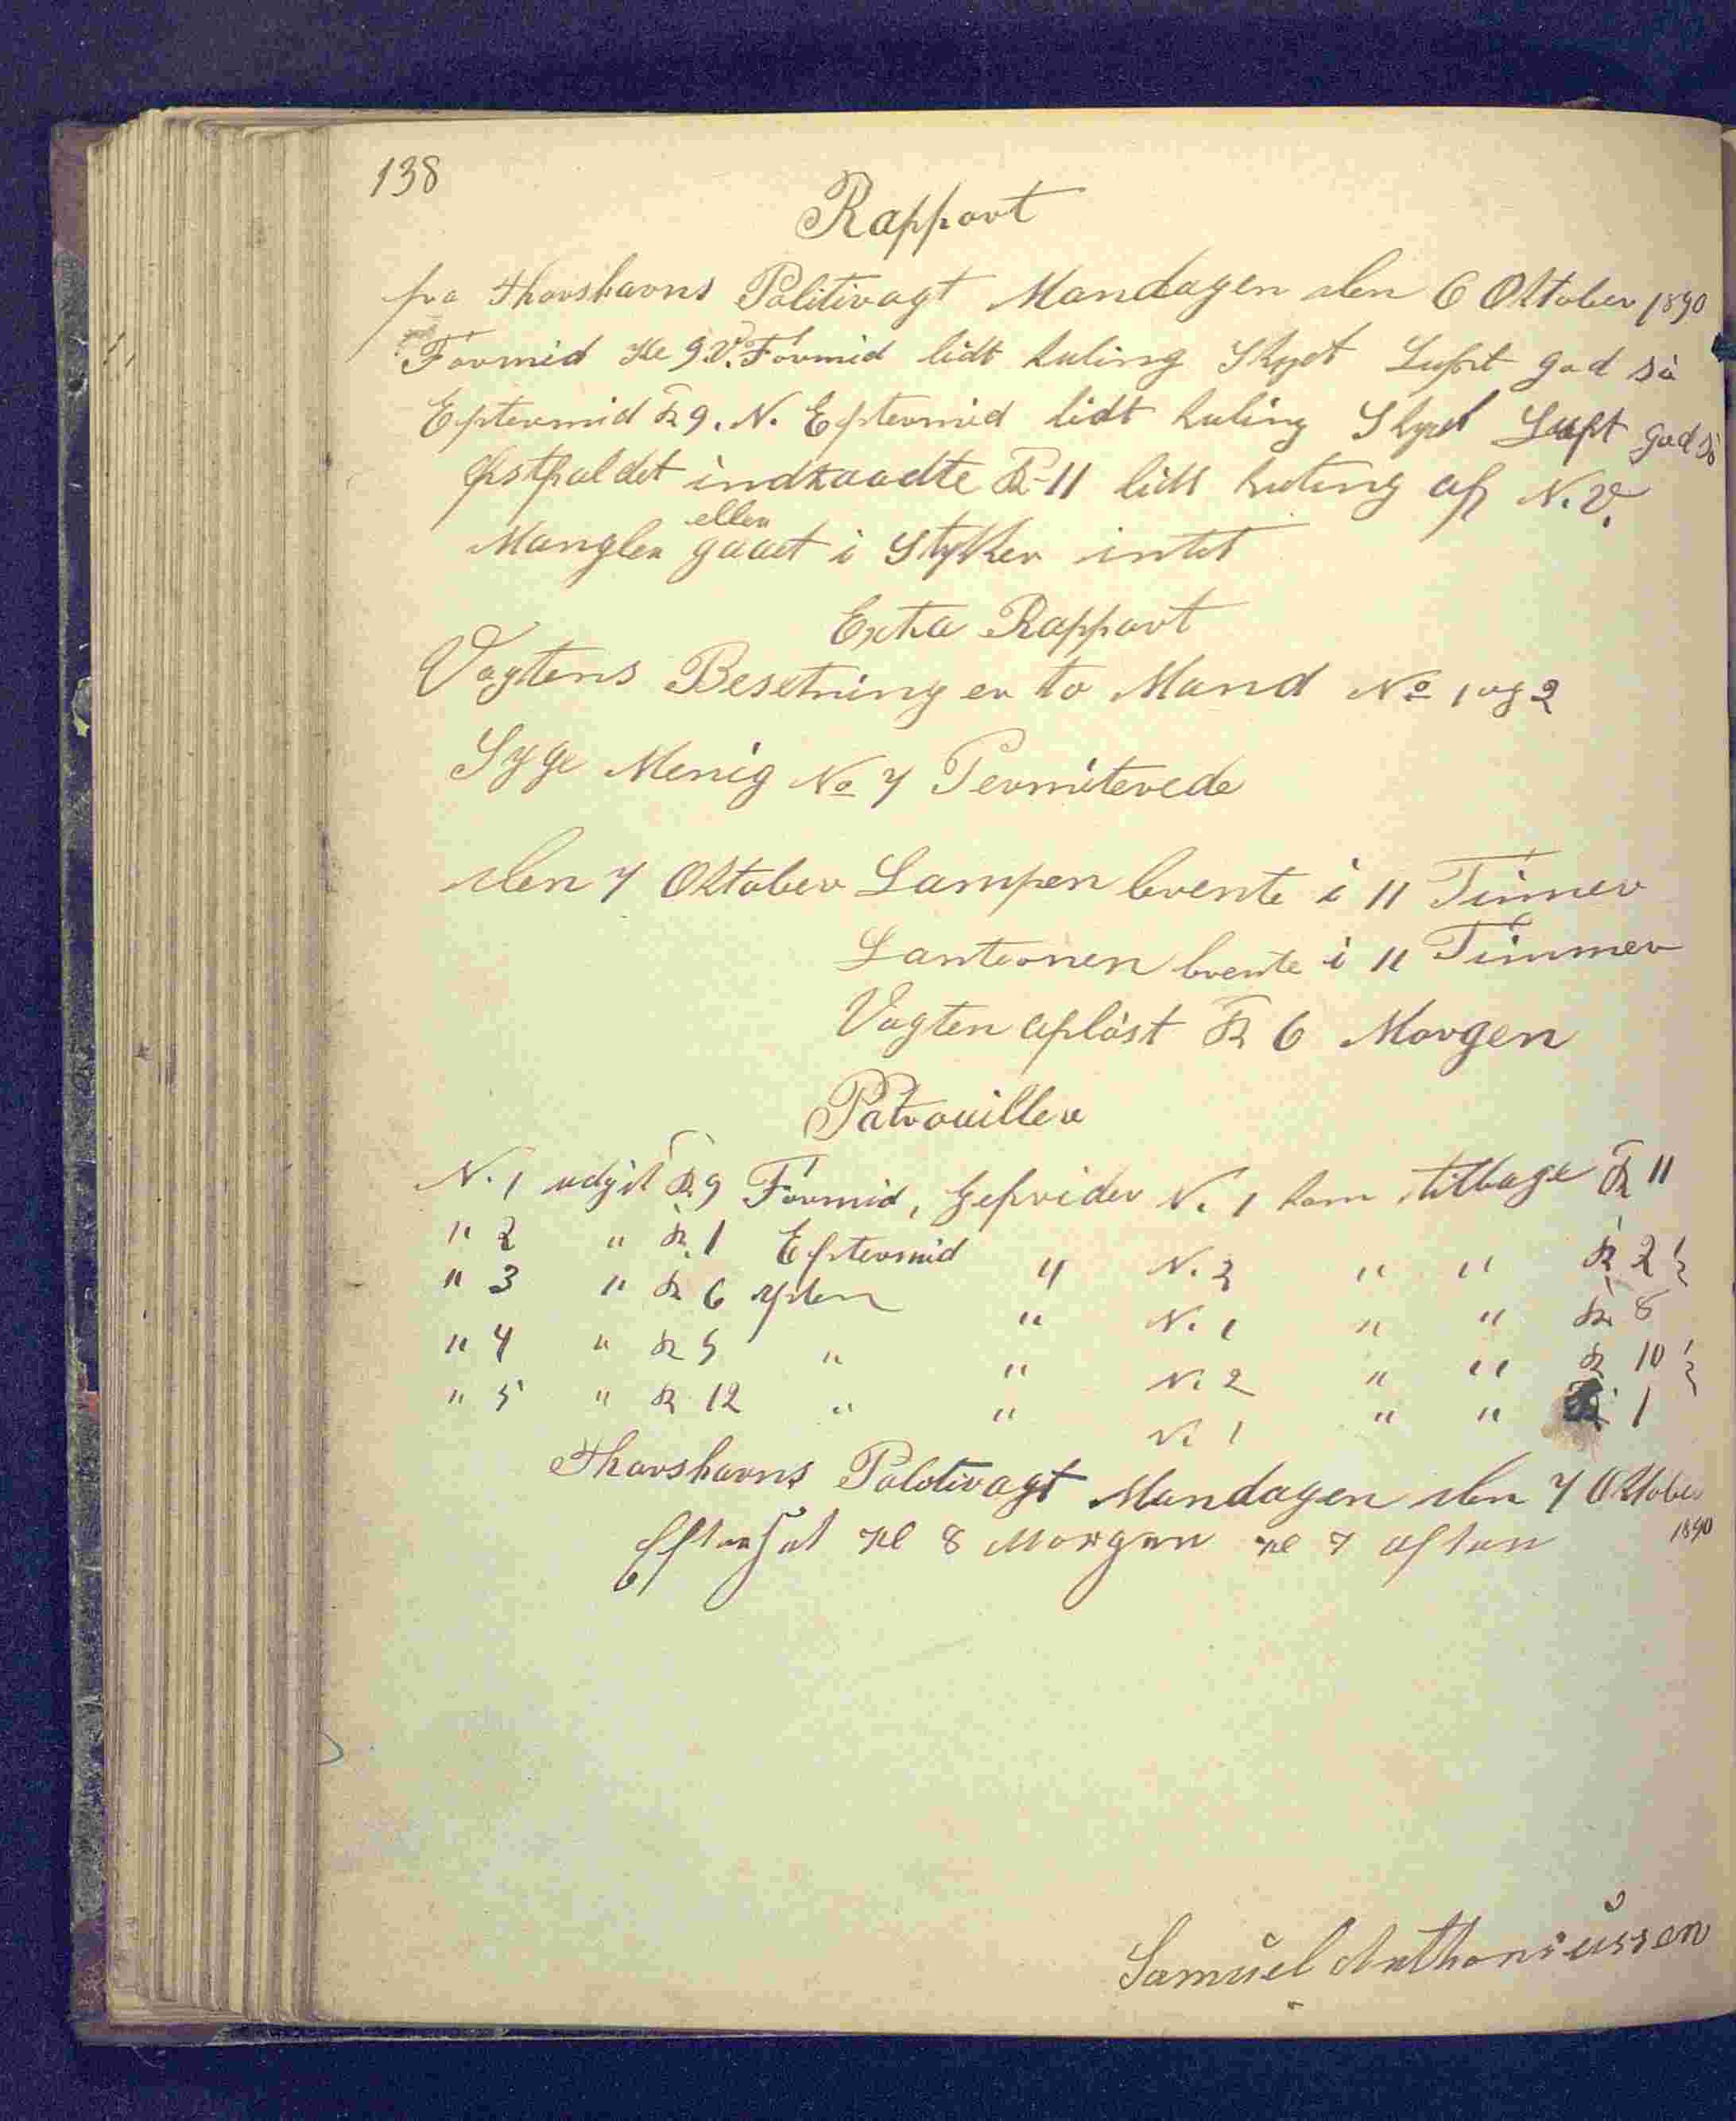 138
Rapport
fra Thorshavns Politivagt Mandagen den 6 Oktober 1890
Formid Kl 9. V. Formid lidt kuling Skyet Luft god sö
Eftermid Kl 9. N. Eftermid lidt kuling Skyet Luft god sö
Kl 11 lidt kuling af N.V.
eller
Mangler gaaet i Stykker intet
Extra Rapport
Vagtens Besetning er to Mand No 1 og 2
Syge Menig No 7 Permiterede
den 7 Oktober Lampen brente i 11 Timer
Lanternen brente i 11 Timmer
Vagten aflöst Kl 6 Morgen
Patrouiller
N. 1 udgik Kl 9 Formid, Gefrider N. 1 kom tilbage Kl 11
" 2 " Kl 1 Eftermid " N. 2 " " Kl 2½
" 3 " Kl 6 Aften " N. 1 " " Kl 8
" 4 " Kl 9 " " N. 2 " " Kl 10½
" 5 " Kl 12 " " N. 1 " " Kl 1
Thorshavns Politivagt Mandagen den 7 Oktober
1890
Efterset Kl 8 Morgen Kl 7 aften
Samuel Anthoniussen